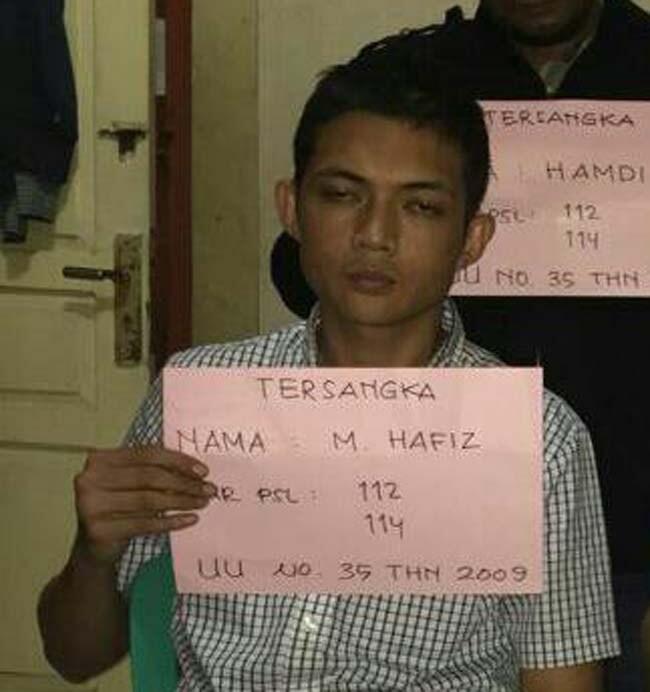 TERSANGKA
HAMDI
PSL: 112
114
UU NO. 35 THN
TERSANGKA
NAMA : M. HAFIZ
PSL : 112
114
UU NO. 35 THN 2009